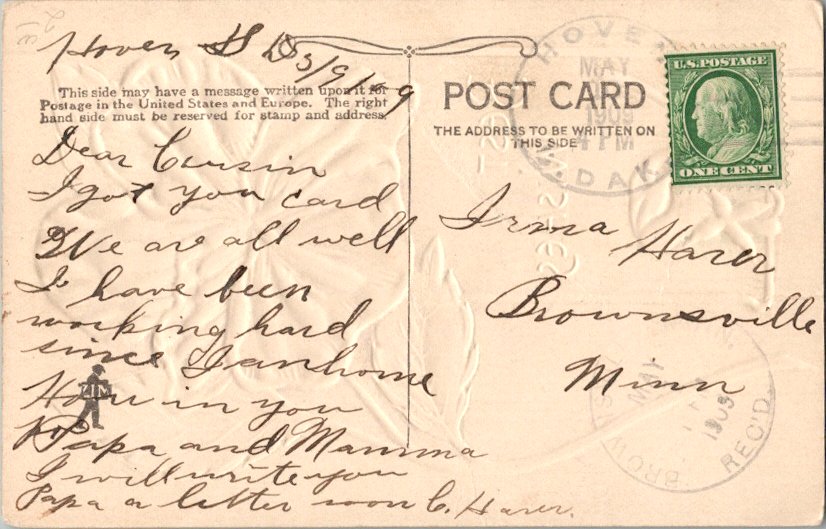 Hoven S D 5/9/09
This side may have a message written upon it for
Postage in the United States and Europe. The right
hand side must be reserved for stamp and address.
Dear Cousin
I got you card
We are all well
I have been
working hard
since I am home
How in you
Papa and Mamma
I will write you
Papa a letter soon C. Harer.
ZIM
POST CARD
THE ADDRESS TO BE WRITTEN ON
THIS SIDE
HOVEN
MAY
1909
4 PM
S. DAK.
U.S. POSTAGE
ONE CENT
Irma Harer
Brownsville
Minn
BROWNS
MAY
1909
REC'D.